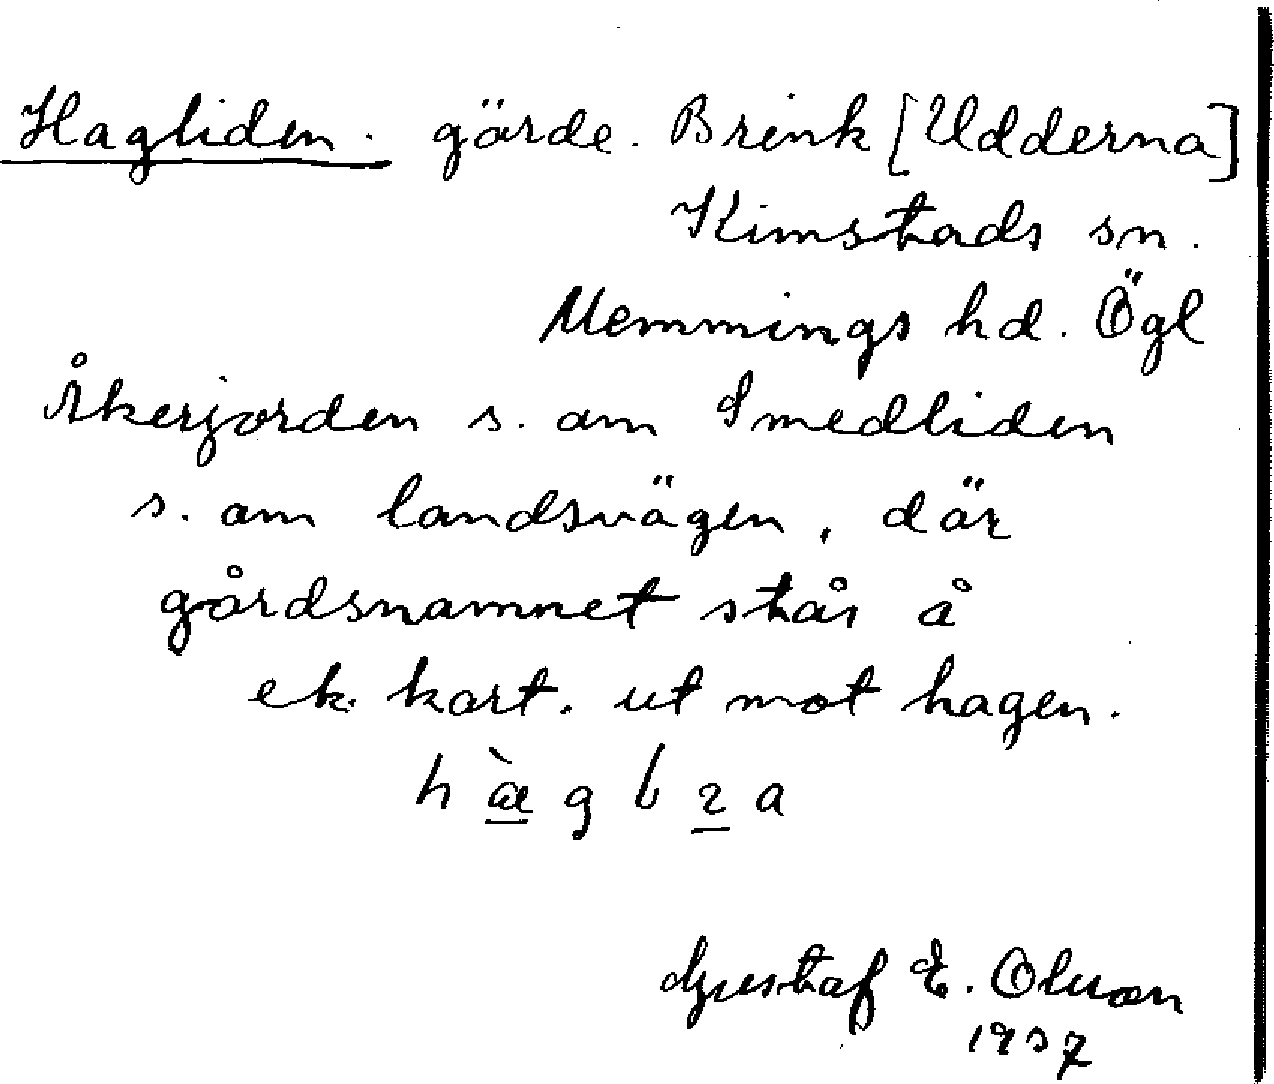 Hagliden. gärde. Brink [Udderna]
Kimstads sn.
Memmings hd. Ögl
Åkerjorden s. om Smedliden
s. om landsvägen, där
gårdsnamnet står å
ek. kart. ut mot hagen.
Gustaf E. Olsson
1937